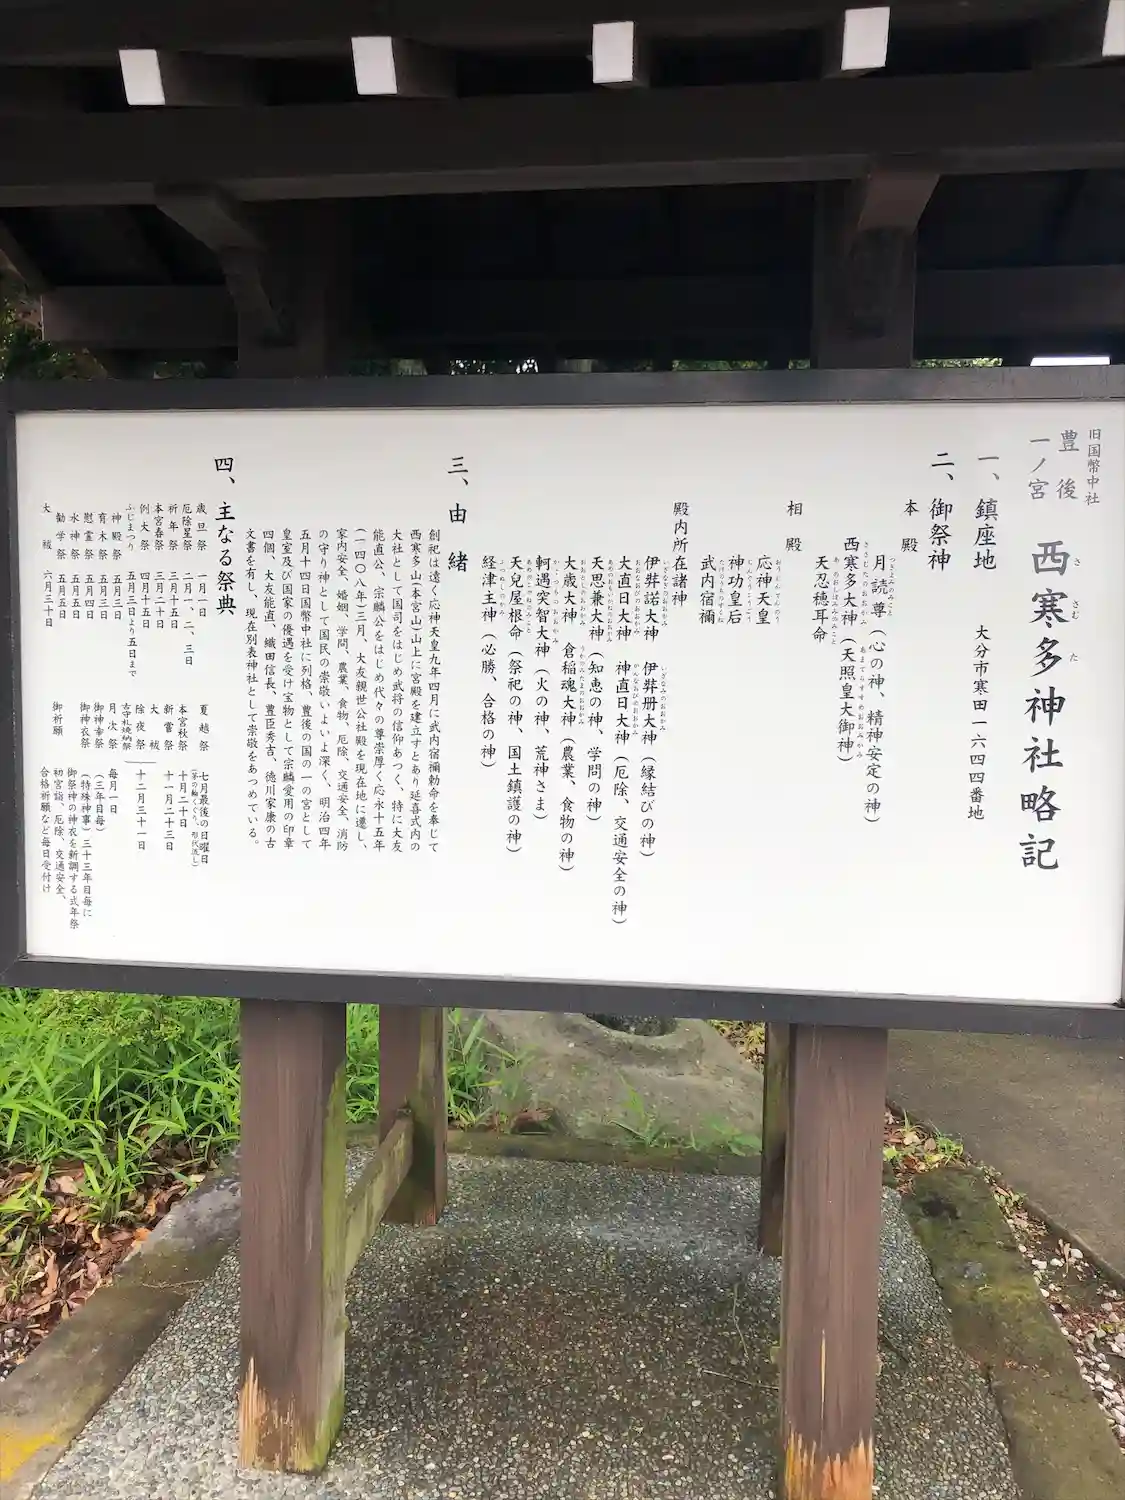 旧国幣中社
豊後
一ノ宮
西寒多神社略記
さむた
一、鎮座地
大分市寒田一六四四番地
二、御祭神
本殿
月読尊（心の神、精神安定の神）
つきよみのみこと
西寒多大神（天照皇大御神）
ささむたのおおかみ あまてらすすめおおみかみ
天忍穂耳命
あめのおしほみみのみこと
相殿
応神天皇
おうじんてんのう
神功皇后
じんぐうこうごう
武内宿禰
たけのうちのすくね
殿内所在諸神
伊弉諾大神 伊弉冊大神（縁結びの神）
いざなぎのおおかみ いざなみのおおかみ
大直日大神 神直日大神（厄除、交通安全の神）
おおなおびのおおかみ かんなおびのおおかみ
天思兼大神（知恵の神、学問の神）
軻遇突智大神（火の神、荒神さま）
大歳大神 倉稲魂大神（農業、食物の神）
おおとしのおおかみ うかのみたまのおおかみ
天兒屋根命（祭祀の神、国土鎮護の神）
あめのこやねのみこと
経津主神（必勝、合格の神）
三、由緒
創祀は遠く応神天皇九年四月に武内宿禰勅命を奉じて
西寒多山（本宮山）山上に宮殿を建立すとあり延喜式内の
大社として国司をはじめ武将の信仰あつく、特に大友
能直公、宗麟公をはじめ代々の尊崇厚く応永十五年
（一四〇八年）三月、大友親世公社殿を現在地に遷し、
家内安全、婚姻、学問、農業、食物、厄除、交通安全、消防
の守り神として国民の崇敬いよいよ深く、明治四年
五月十四日国幣中社に列格、豊後の国の一の宮として
皇室及び国家の優遇を受け宝物として宗麟愛用の印章
四個、大友能直、織田信長、豊臣秀吉、徳川家康の古
文書を有し、現在別表神社として崇敬をあつめている。
四、主なる祭典
歳旦祭 一月一日
厄除星祭 二月一、二、三日
祈年祭 三月十五日
本宮春祭 三月二十日
例大祭 四月十五日
ふじまつり 五月三日より五日まで
神殿祭 五月三日
育木祭 五月三日
慰霊祭 五月四日
水神祭 五月五日
勧学祭 五月五日
大祓 六月三十日
夏越祭 七月最後の日曜日
（茅の輪くぐり、形代流し）
本宮秋祭 十月二十日
新嘗祭 十一月二十三日
大祓
除夜祭 十二月三十一日
古守札焼納祭
月次祭 毎月一日
御神幸祭 （三年目毎）
御神衣祭 （特殊神事）三十三年目毎に
御祭神の神衣を新調する式年祭
御祈願 初宮詣、厄除、交通安全、
合格祈願など毎日受付け